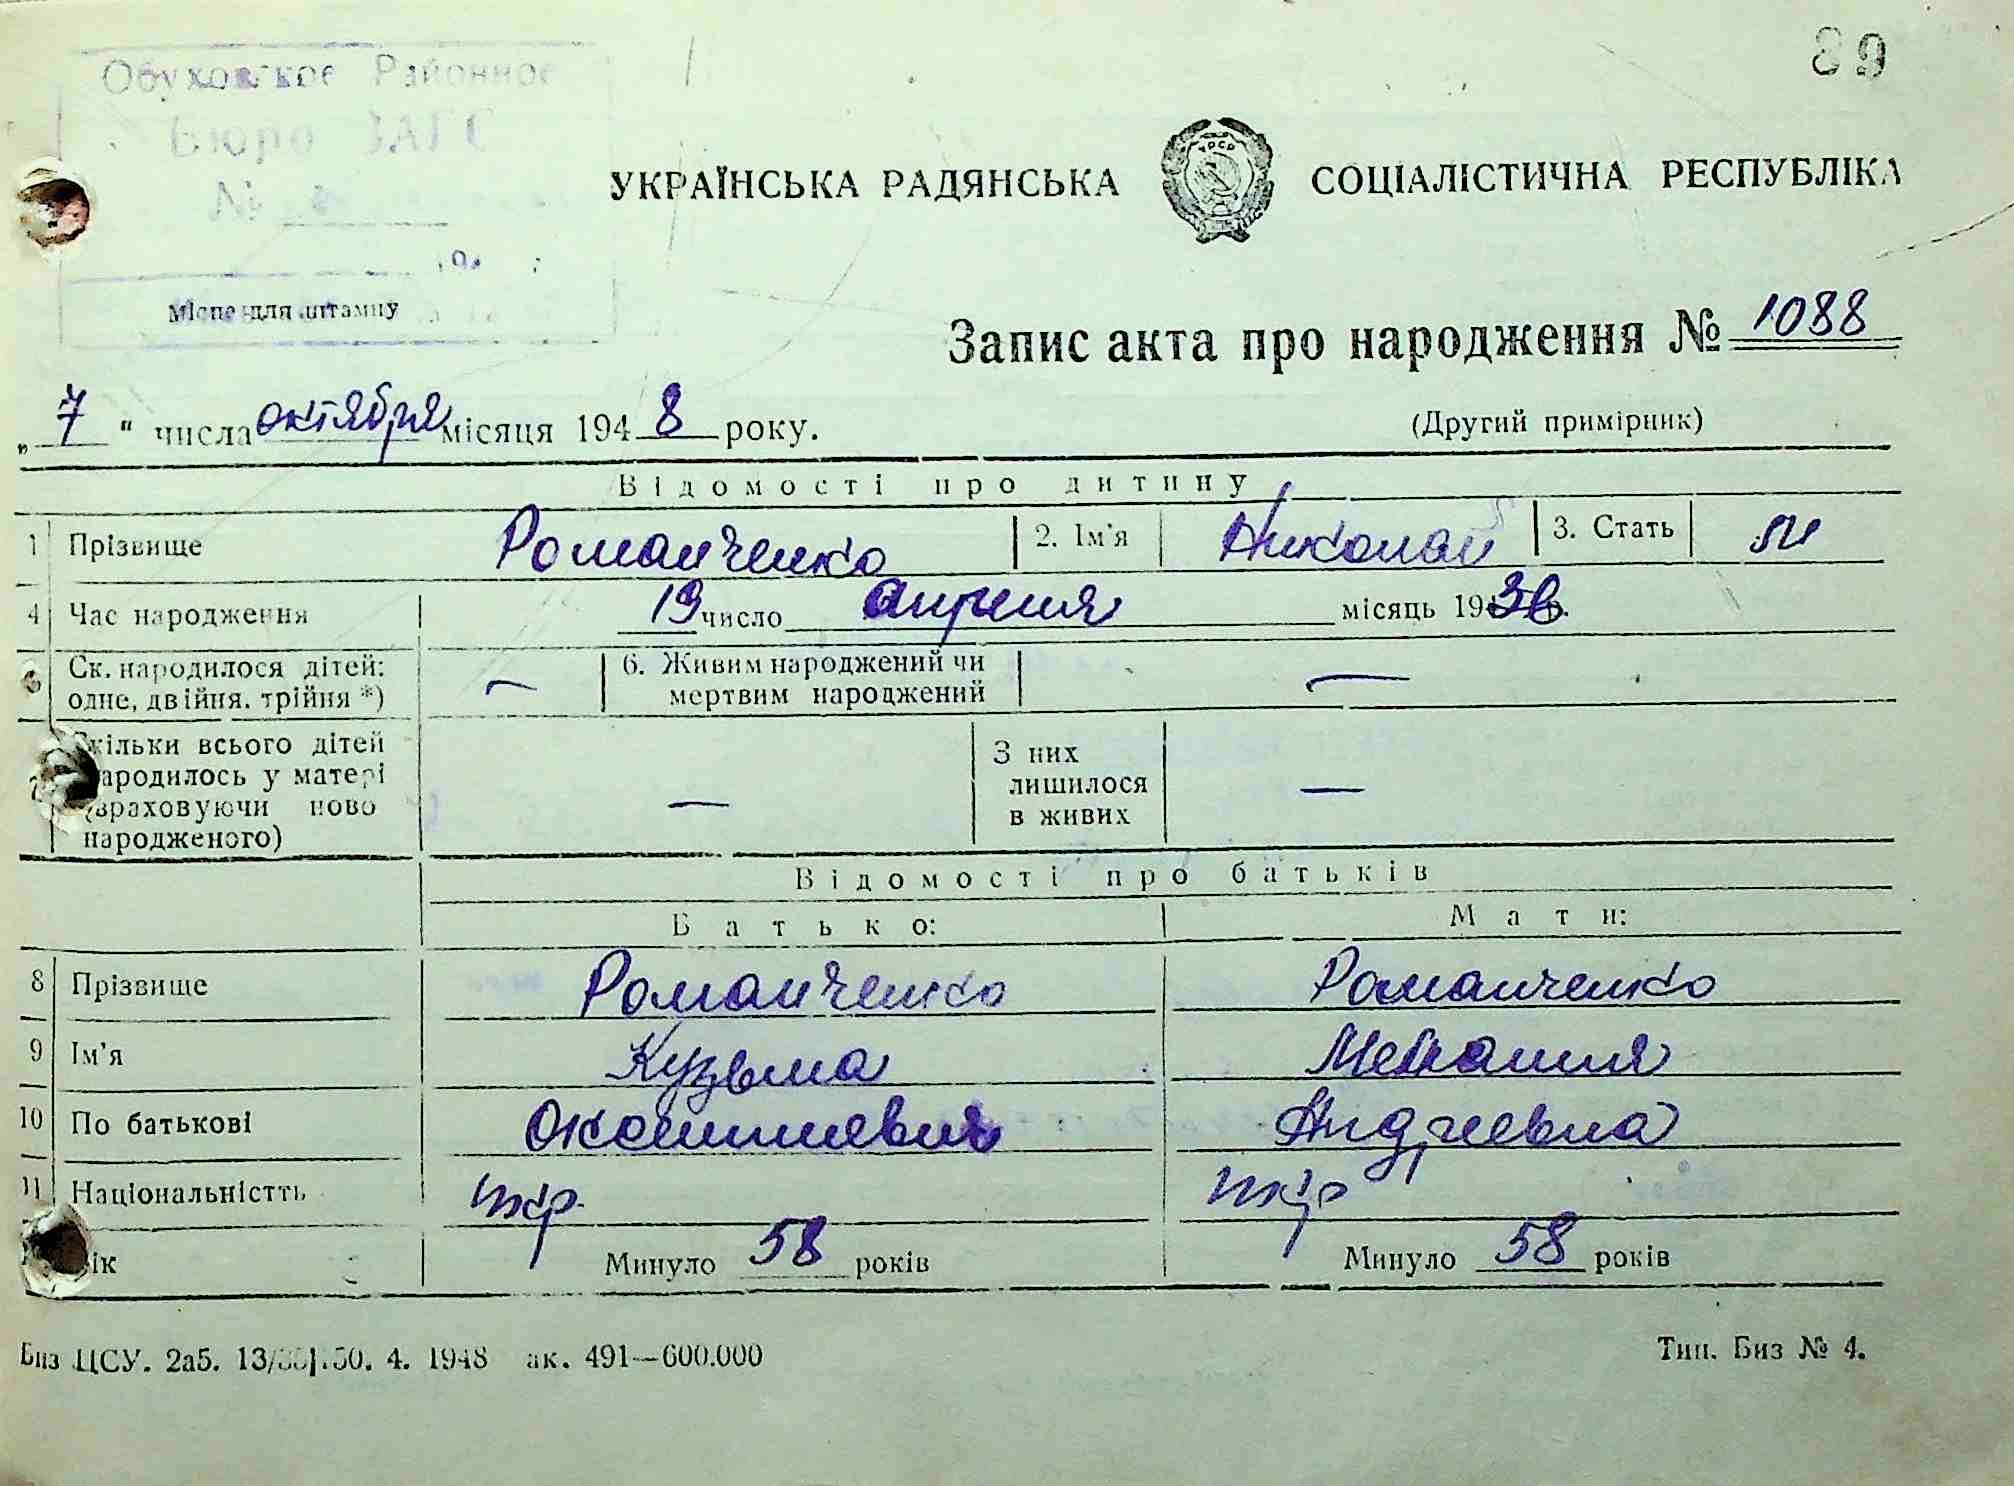 89
Обуховское Районное
Бюро ЗАГС
№
Місце для штампу
УКРАЇНСЬКА РАДЯНСЬКА СОЦІАЛІСТИЧНА РЕСПУБЛІКА
УРСР
Запис акта про народження № 1088
„7“ числа октября місяця 1948 року.
(Другий примірник)
Відомості про дитину
1 Прізвище Романченко 2. Ім'я Николай 3. Стать м
4 Час народження 19 число апреля місяць 19
Ск. народилося дітей: одне, двійня, трійня *) — 6. Живим народжений чи мертвим народжений —
Скільки всього дітей народилось у матері (враховуючи ново народженого) — З них лишилося в живих —
Відомості про батьків
Батько: Мати:
8 Прізвище Романченко Романченко
9 Ім'я Кузьма Мелания
10 По батькові Андреевна
11 Національність укр. укр
Вік Минуло 58 років Минуло 58 років
Биз ЦСУ. 2а5. 4. 1948 ак. 491—600.000
Тип. Биз № 4.